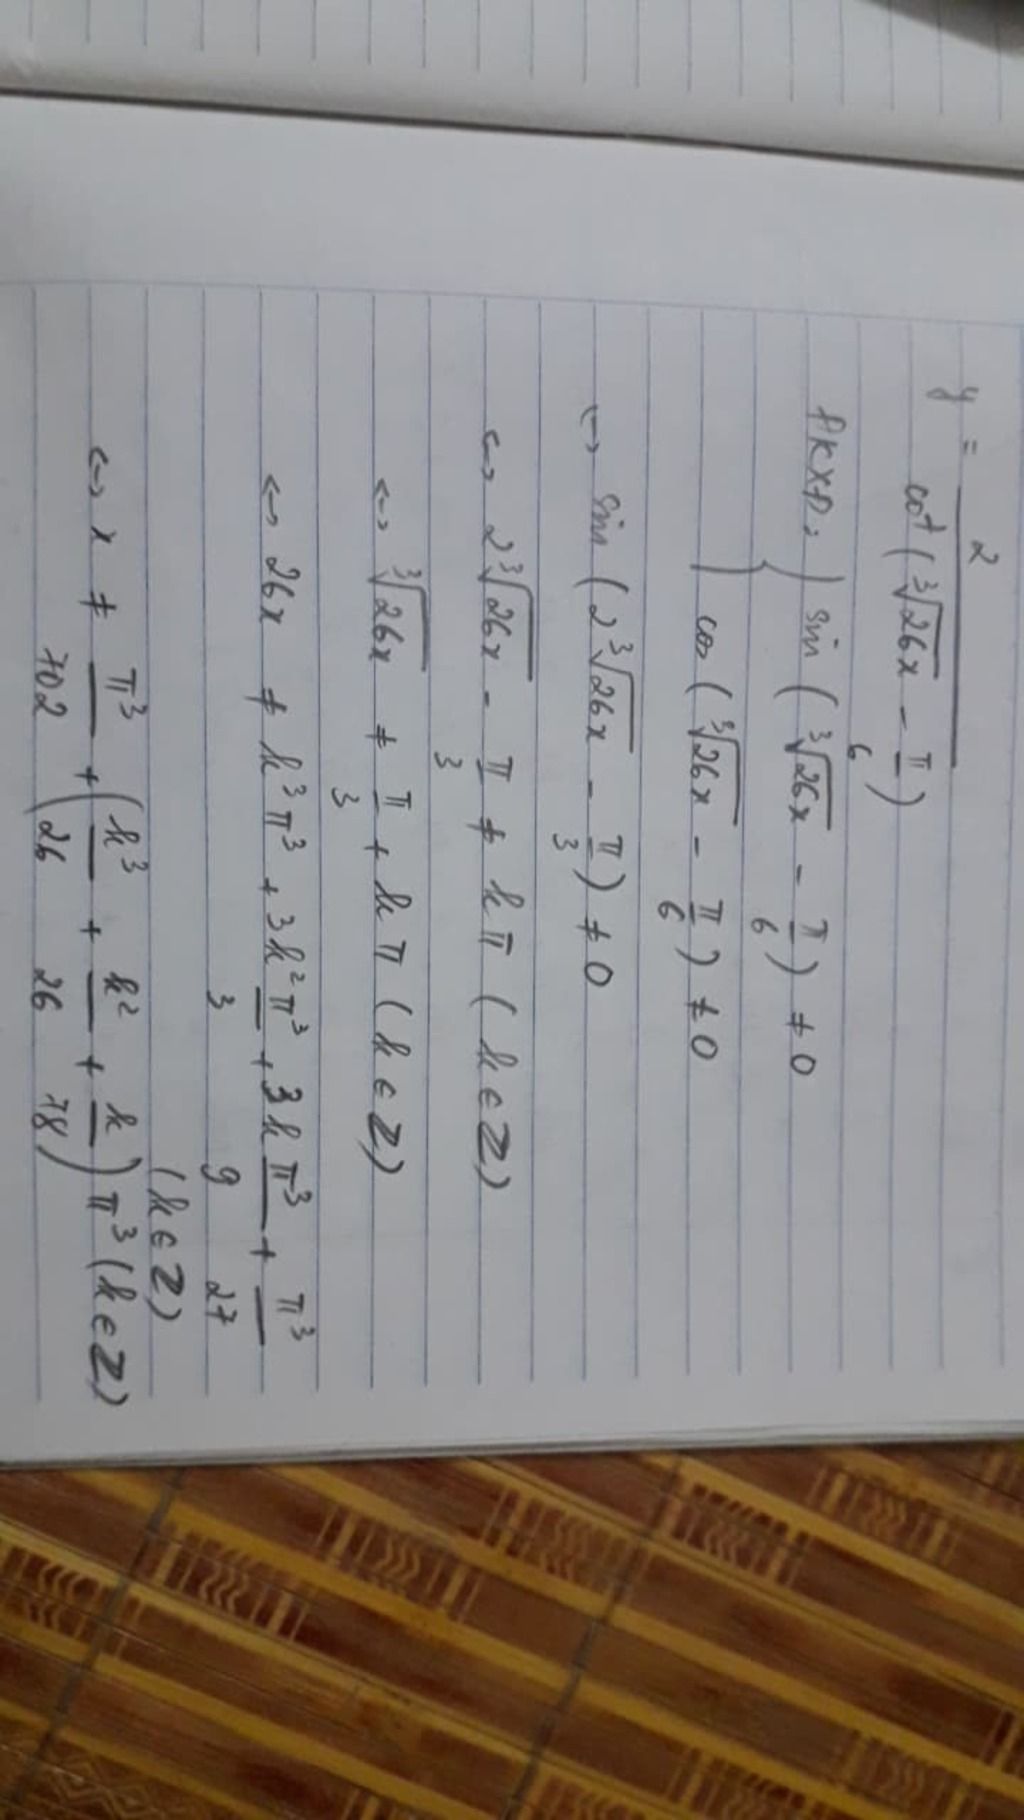 y = 2/cot(∛26x - π/6)
ĐKXĐ: { sin(∛26x - π/6) ≠ 0
cos(∛26x - π/6) ≠ 0
↔ sin(2∛26x - π/3) ≠ 0
↔ 2∛26x - π/3 ≠ kπ (k ∈ Z)
↔ ∛26x ≠ π/3 + kπ (k ∈ Z)
↔ 26x ≠ k³π³ + 3k²π³/3 + 3kπ³/9 + π³/27
(k ∈ Z)
↔ x ≠ π³/702 + (k³/26 + k²/26 + k/78)π³ (k ∈ Z)